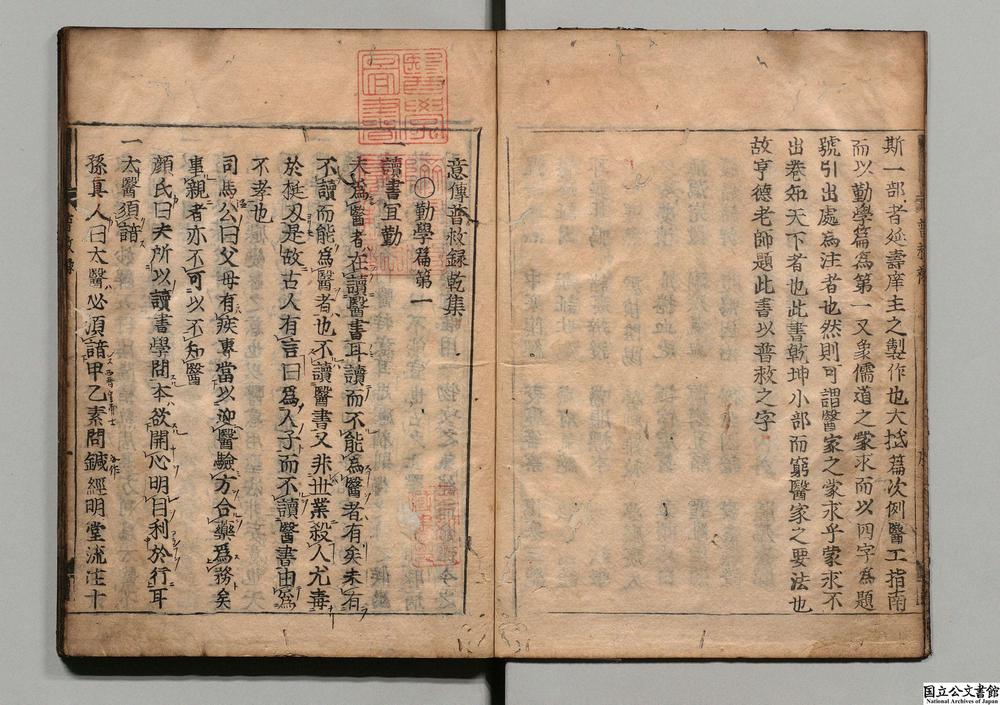 斯一部者延壽庠主之製作也大抵篇次例醫工指南
而以勤學篇為第一又象儒道之蒙求而以四字為題
號引出處為注者也然則可謂醫家之蒙求乎蒙求不
出卷知天下者也此書乾坤小部而窮醫家之要法也
故亨德老師題此書以普救之字
意傳普救録乾集
〇勤學篇第一
一讀書宜勤
夫為醫者在讀醫書耳讀而不能為醫者有矣未有
不讀而能為醫者也不讀醫書又非丗業殺人尤毒
於挺刃是故古人有言曰為人子而不讀醫書由為
不孝也
司馬公曰父母有疾專當以迎醫驗方合藥為務矣
事親者亦不可以不知醫
顔氏曰夫所以讀書學問本欲開心明目利於行耳
一大醫須諳
孫真人曰大醫必須諳甲乙素問鍼經明堂流注十
普救序
国立公文書館
National Archives of Japan